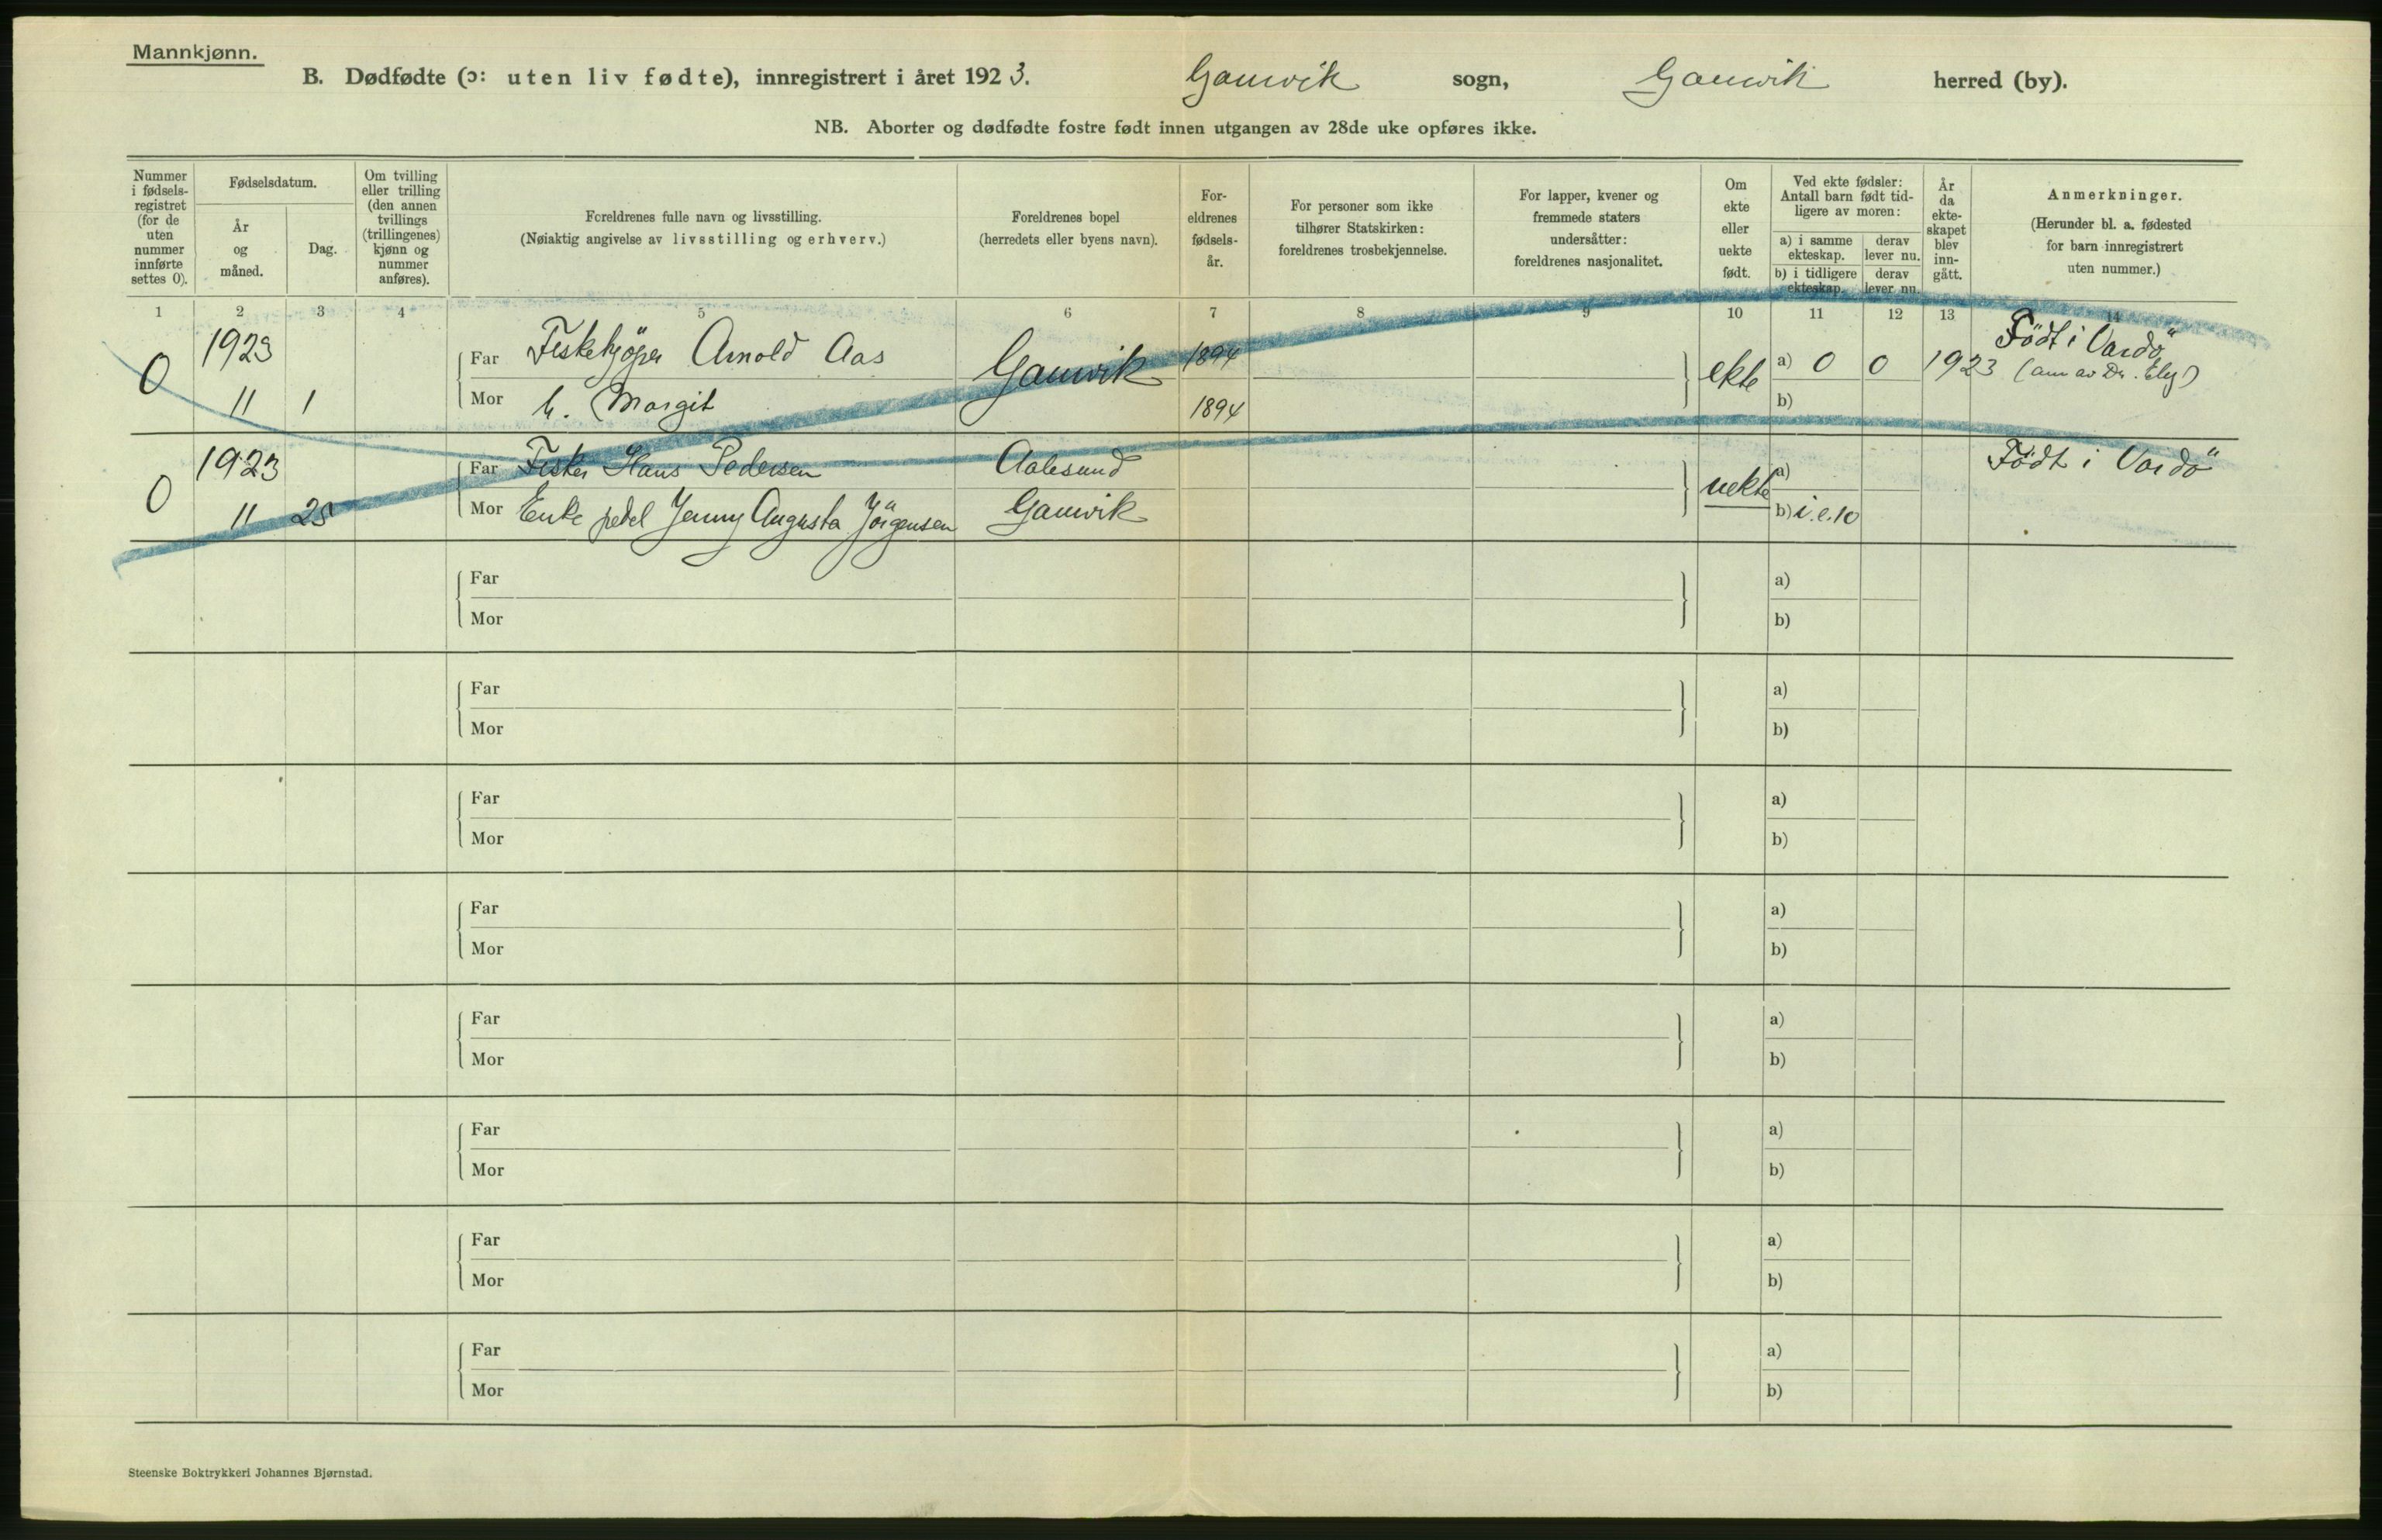 Mannkjønn.
B. Dødfødte (ɔ: uten liv fødte), innregistrert i året 1923. Gamvik sogn, Gamvik herred (by).
NB. Aborter og dødfødte fostre født innen utgangen av 28de uke opføres ikke.
Nummer i fødsels-registret (for de uten nummer innførte settes 0).
Fødselsdatum.
År og måned.
Dag.
Om tvilling eller trilling (den annen tvillings (trillingenes) kjønn og nummer anføres).
Foreldrenes fulle navn og livsstilling.
(Nøiaktig angivelse av livsstilling og erhverv.)
Foreldrenes bopel
(herredets eller byens navn).
For-eldrenes fødsels-år.
For personer som ikke tilhører Statskirken: foreldrenes trosbekjennelse.
For lapper, kvener og fremmede staters undersåtter: foreldrenes nasjonalitet.
Om ekte eller uekte født.
Ved ekte fødsler: Antall barn født tid-ligere av moren:
a) i samme ekteskap.
derav lever nu.
b) i tidligere ekteskap.
derav lever nu.
År da ekte-skapet blev inn-gått.
Anmerkninger.
(Herunder bl. a. fødested for barn innregistrert uten nummer.)
1 2 3 4 5 6 7 8 9 10 11 12 13 14
0 1923 11 1 Far Fiskekjöper Arnold Aas Gamvik 1894 ekte a) 0 0 1923 Födt i Vardö
Mor h. Margit 1894 b)
0 1923 11 25 Far Fisker Hans Pedersen Aalesund uekte a) Födt i Vardö
Mor Enke Jenny Augusta Jörgensen Gamvik b) i.e. 10
Far a)
Mor b)
Far a)
Mor b)
Far a)
Mor b)
Far a)
Mor b)
Far a)
Mor b)
Far a)
Mor b)
Far a)
Mor b)
Far a)
Mor b)
Steenske Boktrykkeri Johannes Bjørnstad.